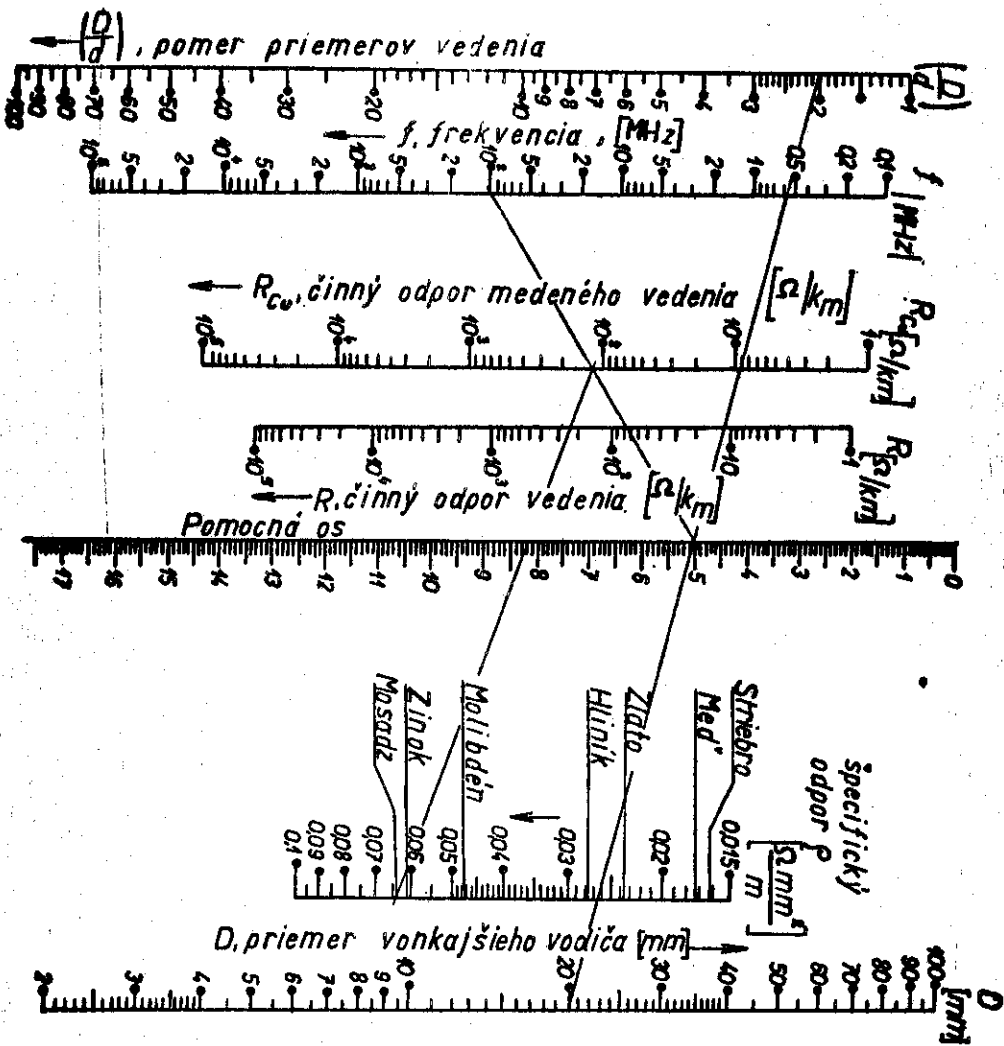 (D/d), pomer priemerov vedenia
(D/d)
100 90 80 70 60 50 40 30 20 10 9 8 7 6 5 4 3 2 1
f, frekvencia, [MHz]
10⁵ 5 2 10⁴ 5 2 10³ 5 2 10² 5 2 10 5 2 1 0,5 0,2 0,1
f [MHz]
R_Cu, činný odpor medeného vedenia [Ω/km]
10⁵ 10⁴ 10³ 10² 10 1
R_Cu [Ω/km]
10⁵ 10⁴ 10³ 10² 10 1
R [Ω/km]
R, činný odpor vedenia [Ω/km]
Pomocná os
17 16 15 14 13 12 11 10 9 8 7 6 5 4 3 2 1 0
Mosadz
Zinok
Molibdén
Hliník
Zlato
Meď
Striebro
špecifický
odpor ρ
[Ωmm²/m]
0,1 0,09 0,08 0,07 0,06 0,05 0,04 0,03 0,02 0,015
D, priemer vonkajšieho vodiča [mm]
2 3 4 5 6 7 8 9 10 20 30 40 50 60 70 80 90 100
D [mm]